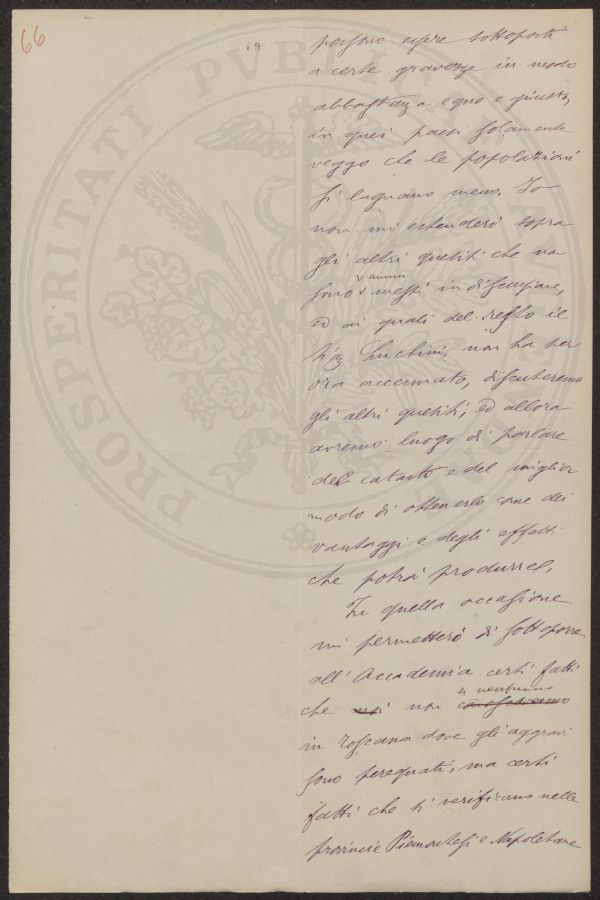 66
69
possono essere sottoposti
a certe gravezze in modo
abbastanza equo e giusto,
in quei paesi solamente
veggo che le popolazioni
si lagnano meno. Io
non mi estenderò sopra
gli altri quesiti che non
saranno
sono messi in discussione,
ed ai quali del resto il
Sig. Luchini, non ha per
ora accennato, discuteremo
gli altri quesiti, ed allora
avremo luogo di parlare
del catasto e del miglior
modo di ottenerlo come dei
vantaggi e degli effetti
che potrà produrre.
In quella occasione
mi permetterò di sottoporre
all'Accademia certi fatti
si verificano
che noi non conosceremo
in Toscana dove gli aggravi
sono perequati, ma certi
fatti che si verificano nelle
provincie Piemontesi e Napoletane
PROSPERITATI PVBLICAE